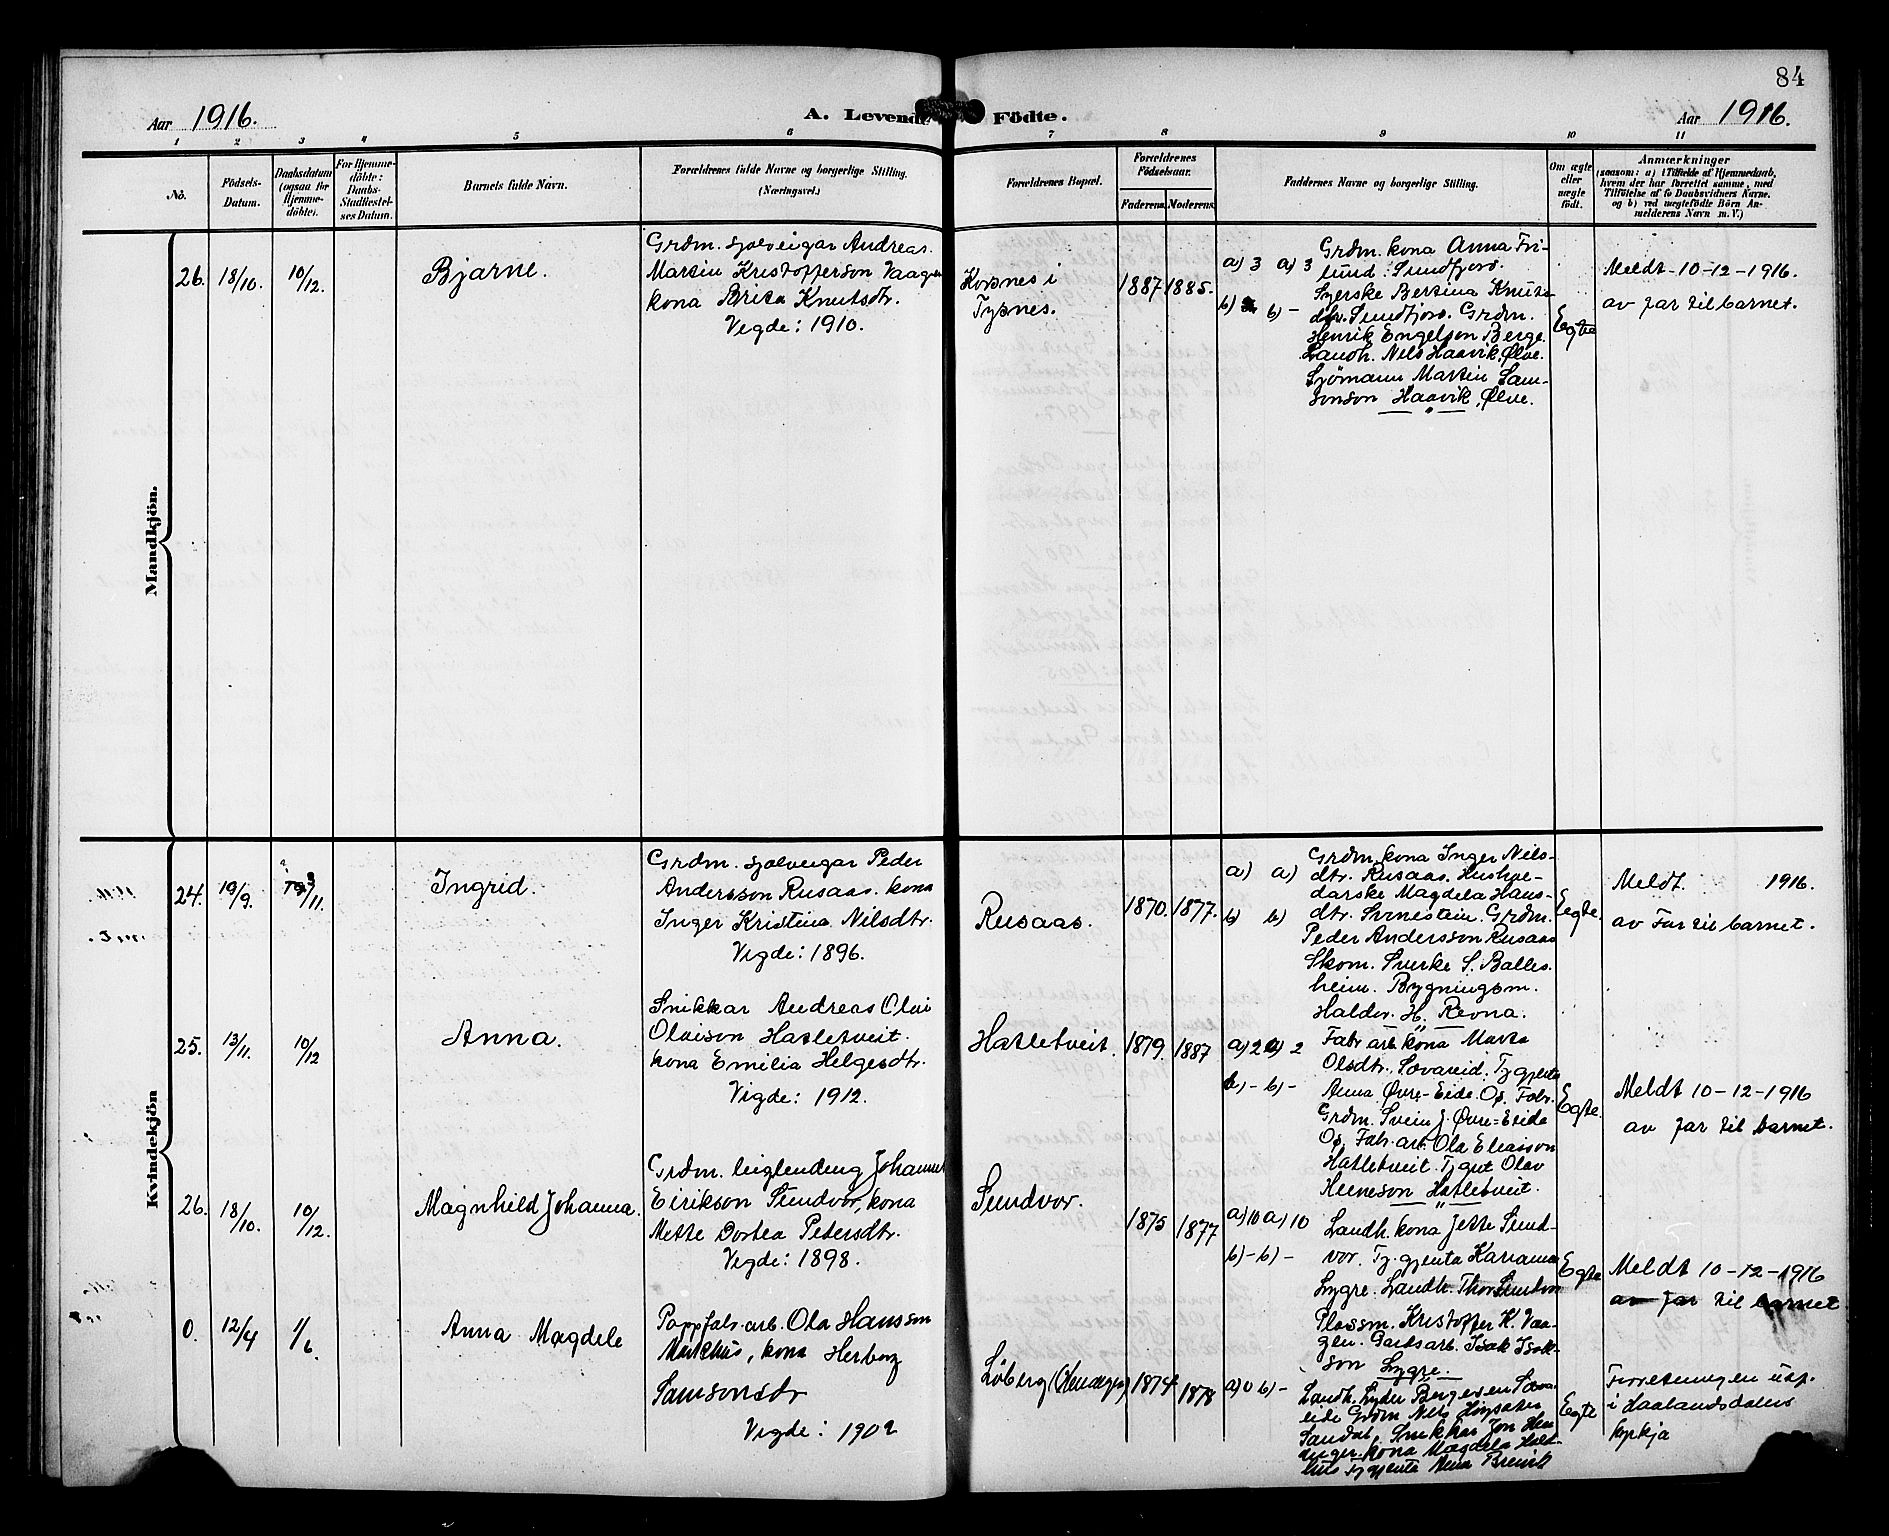 84
Aar 1916.
A. Levende Födte.
Aar 1916.
1 2 3 4 5 6 7 8 9 10 11
No.
Födsels-
Datum.
Daabsdatum
(ogsaa for
Hjemme-
döbte).
For Hjemme-
döbte:
Daabs-
Stadfæstel-
ses Datum.
Barnets fulde Navn.
Forældrenes fulde Navne og borgerlige Stilling.
(Næringsvei.)
Forældrenes Bopæl.
Forældrenes
Födselsaar.
Faderens. Moderens.
Faddernes Navne og borgerlige Stilling.
Om ægte
eller
uægte
födt.
Anmærkninger
(saasom: a) i Tilfælde af Hjemmedaab,
hvem der har forrettet samme, med
Tilföielse af to Daabsvidners Navne.
og b) ved uægtefödte Börn An-
melderens Navn m. V.)
Mandkjön.
26.
18/10.
10/12.
Bjarne.
Grdm. sjølveigar Andreas
Martin Kristofferson Vaage
kona Brita Knutsdtr.
Vigde: 1910.
Korsnes i
Tysnes.
1887
1885.
a) 3 a) 3
b) b) -
Grdm. kona Anna Fri-
lund. Sundfjord.
Syerske Bertina Knuts-
dtr. Sundfjord. Grdm.
Henrik Engelsen Berge.
Landh. Nils Haavik, Ølve.
Sjømann Martin Sam-
sonson Haavik, Ølve.
Egte
Meldt 10-12-1916.
av far til barnet.
Kvindekjön
24.
19/9.
/11.
Ingrid.
Grdm. sjølveigar Peder
Andersson Rusaas. kona
Inger Kristina Nilsdtr.
Vigde: 1896.
Rusaas.
1870.
1877.
a) a)
b) b)
Grdm. kona Inger Nils-
dtr. Rusaas. Hushol-
darske Magdela Hans-
dtr. Svinestein. Grdm.
Peder Andersson Rusaas
Skom. Sverke S. Balles-
heim. Bygningsm.
Haldor H. Revna.
Egte.
Meldt. 1916.
av Far til barnet.
25.
13/11.
10/12
Anna.
Snikkar Andreas Olai
Olaison Hatletveit.
kona Emilia Helgesdtr.
Vigde: 1912.
Hatletveit.
1879.
1887
a) 2 a) 2
b) - b) -
Fabr. arb. kona Marta
Olsdtr. Sævareid. Tj gjenta
Anna Øvre-Eide. Os. Fabr.
Grdm. Svein J. Øvre=Eide
Os. Fabr. arb. Ola Eleaisson
Hatletveit. Tj gut Olav
Heineson Hatletveit.
Egte.
Meldt 10-12-1916
av far til barnet.
26.
18/10.
10/12.
Magnhild Johanna.
Grdm. leiglending Johannes
Eirikson Sundvor, kona
Mette Dortea Petersdtr.
Vigde: 1898.
Sundvor.
1875
1877
a) 10 a) 10
b) - b) -
Landh. kona Jette Sund-
vor. Tj. gjenta Karianna
Lygre. Landh. Thor Sundvor
Plassm. Kristoffer K. Vaa-
gen. Gardsarb. Isak Isak-
son Lygre.
Egte
Meldt 10-12-1916
av far til barnet
0.
12/4
1/6.
Anna Magdele
Pappfabr. arb. Ola Hansson
kona Herborg
Samsonsdtr
Vigde: 1902
Løberg
1874
1878
a) 0 b) -
Landh. Lyder Bergesen Sæva-
eide Grdm Nils
Sandal, Snikkar Jon
kona Magdela
Tj gjenta
Egte
Forretningen utf.
i Haalandsdalens
kyrkja